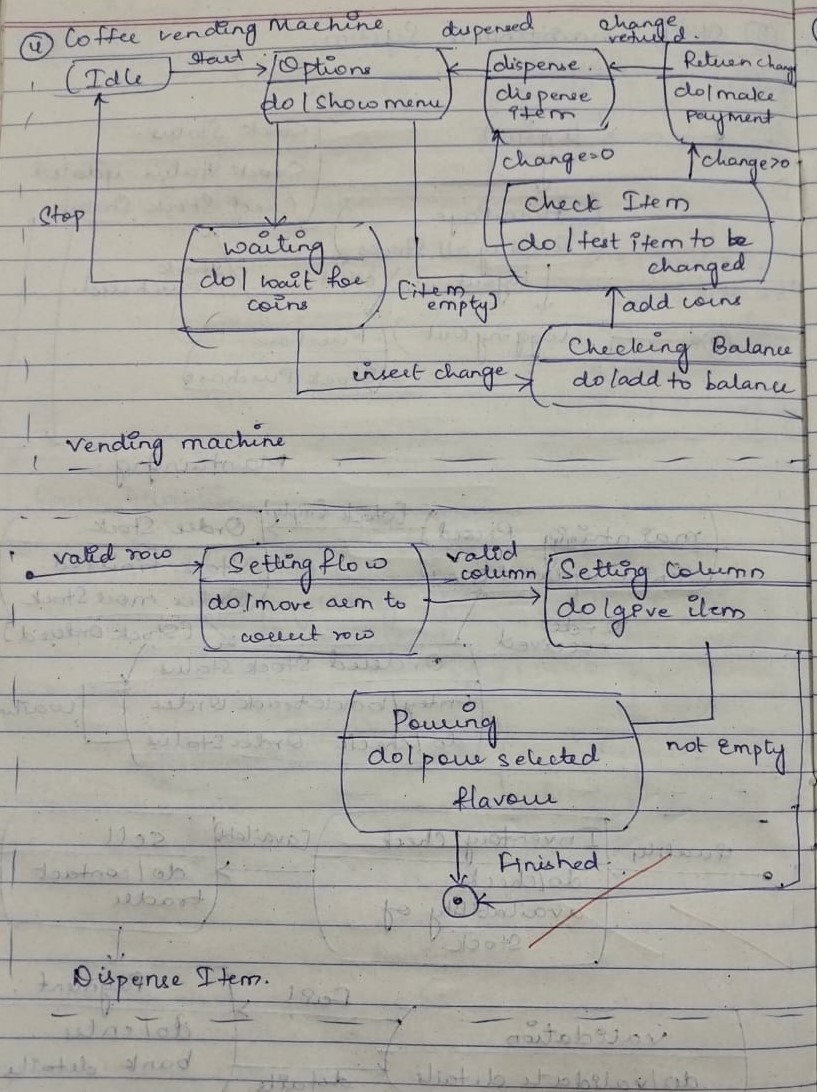 4 Coffee vending Machine
dispensed
change
returned.
Idle
Start
Options
do / show menu
dispense.
dispense
item
Return chang
do / make
payment
change=0
change>0
Check Item
do / test item to be
changed
Stop
waiting
do / wait for
coins
[item
empty]
add coins
Checking Balance
do / add to balance
insert change
vending machine
valid row
Setting flow
do / move arm to
correct row
valid
column
Setting Column
do / give item
Pouring
do / pour selected
flavour
not Empty
Finished.
Dispense Item.